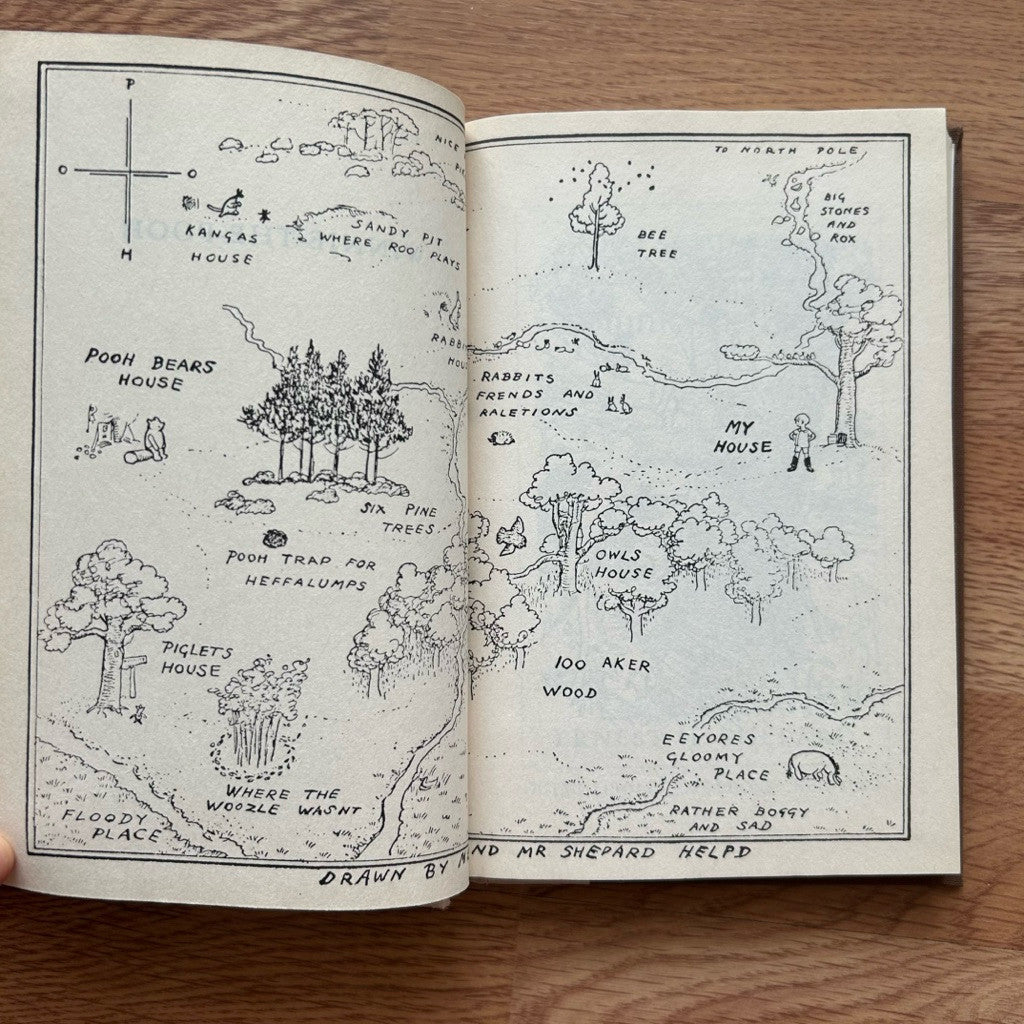 P
O
O
H
NICE
KANGAS
HOUSE
SANDY PIT
WHERE ROO PLAYS
POOH BEARS
HOUSE
SIX PINE
TREES
POOH TRAP FOR
HEFFALUMPS
PIGLETS
HOUSE
WHERE THE
WOOZLE WASNT
FLOODY
PLACE
DRAWN BY
TO NORTH POLE
BIG
STONES
AND
ROX
BEE
TREE
RABBITS
FRENDS AND
RALETIONS
MY
HOUSE
OWLS
HOUSE
100 AKER
WOOD
EEYORES
GLOOMY
PLACE
RATHER BOGGY
AND SAD
MR SHEPARD HELPD